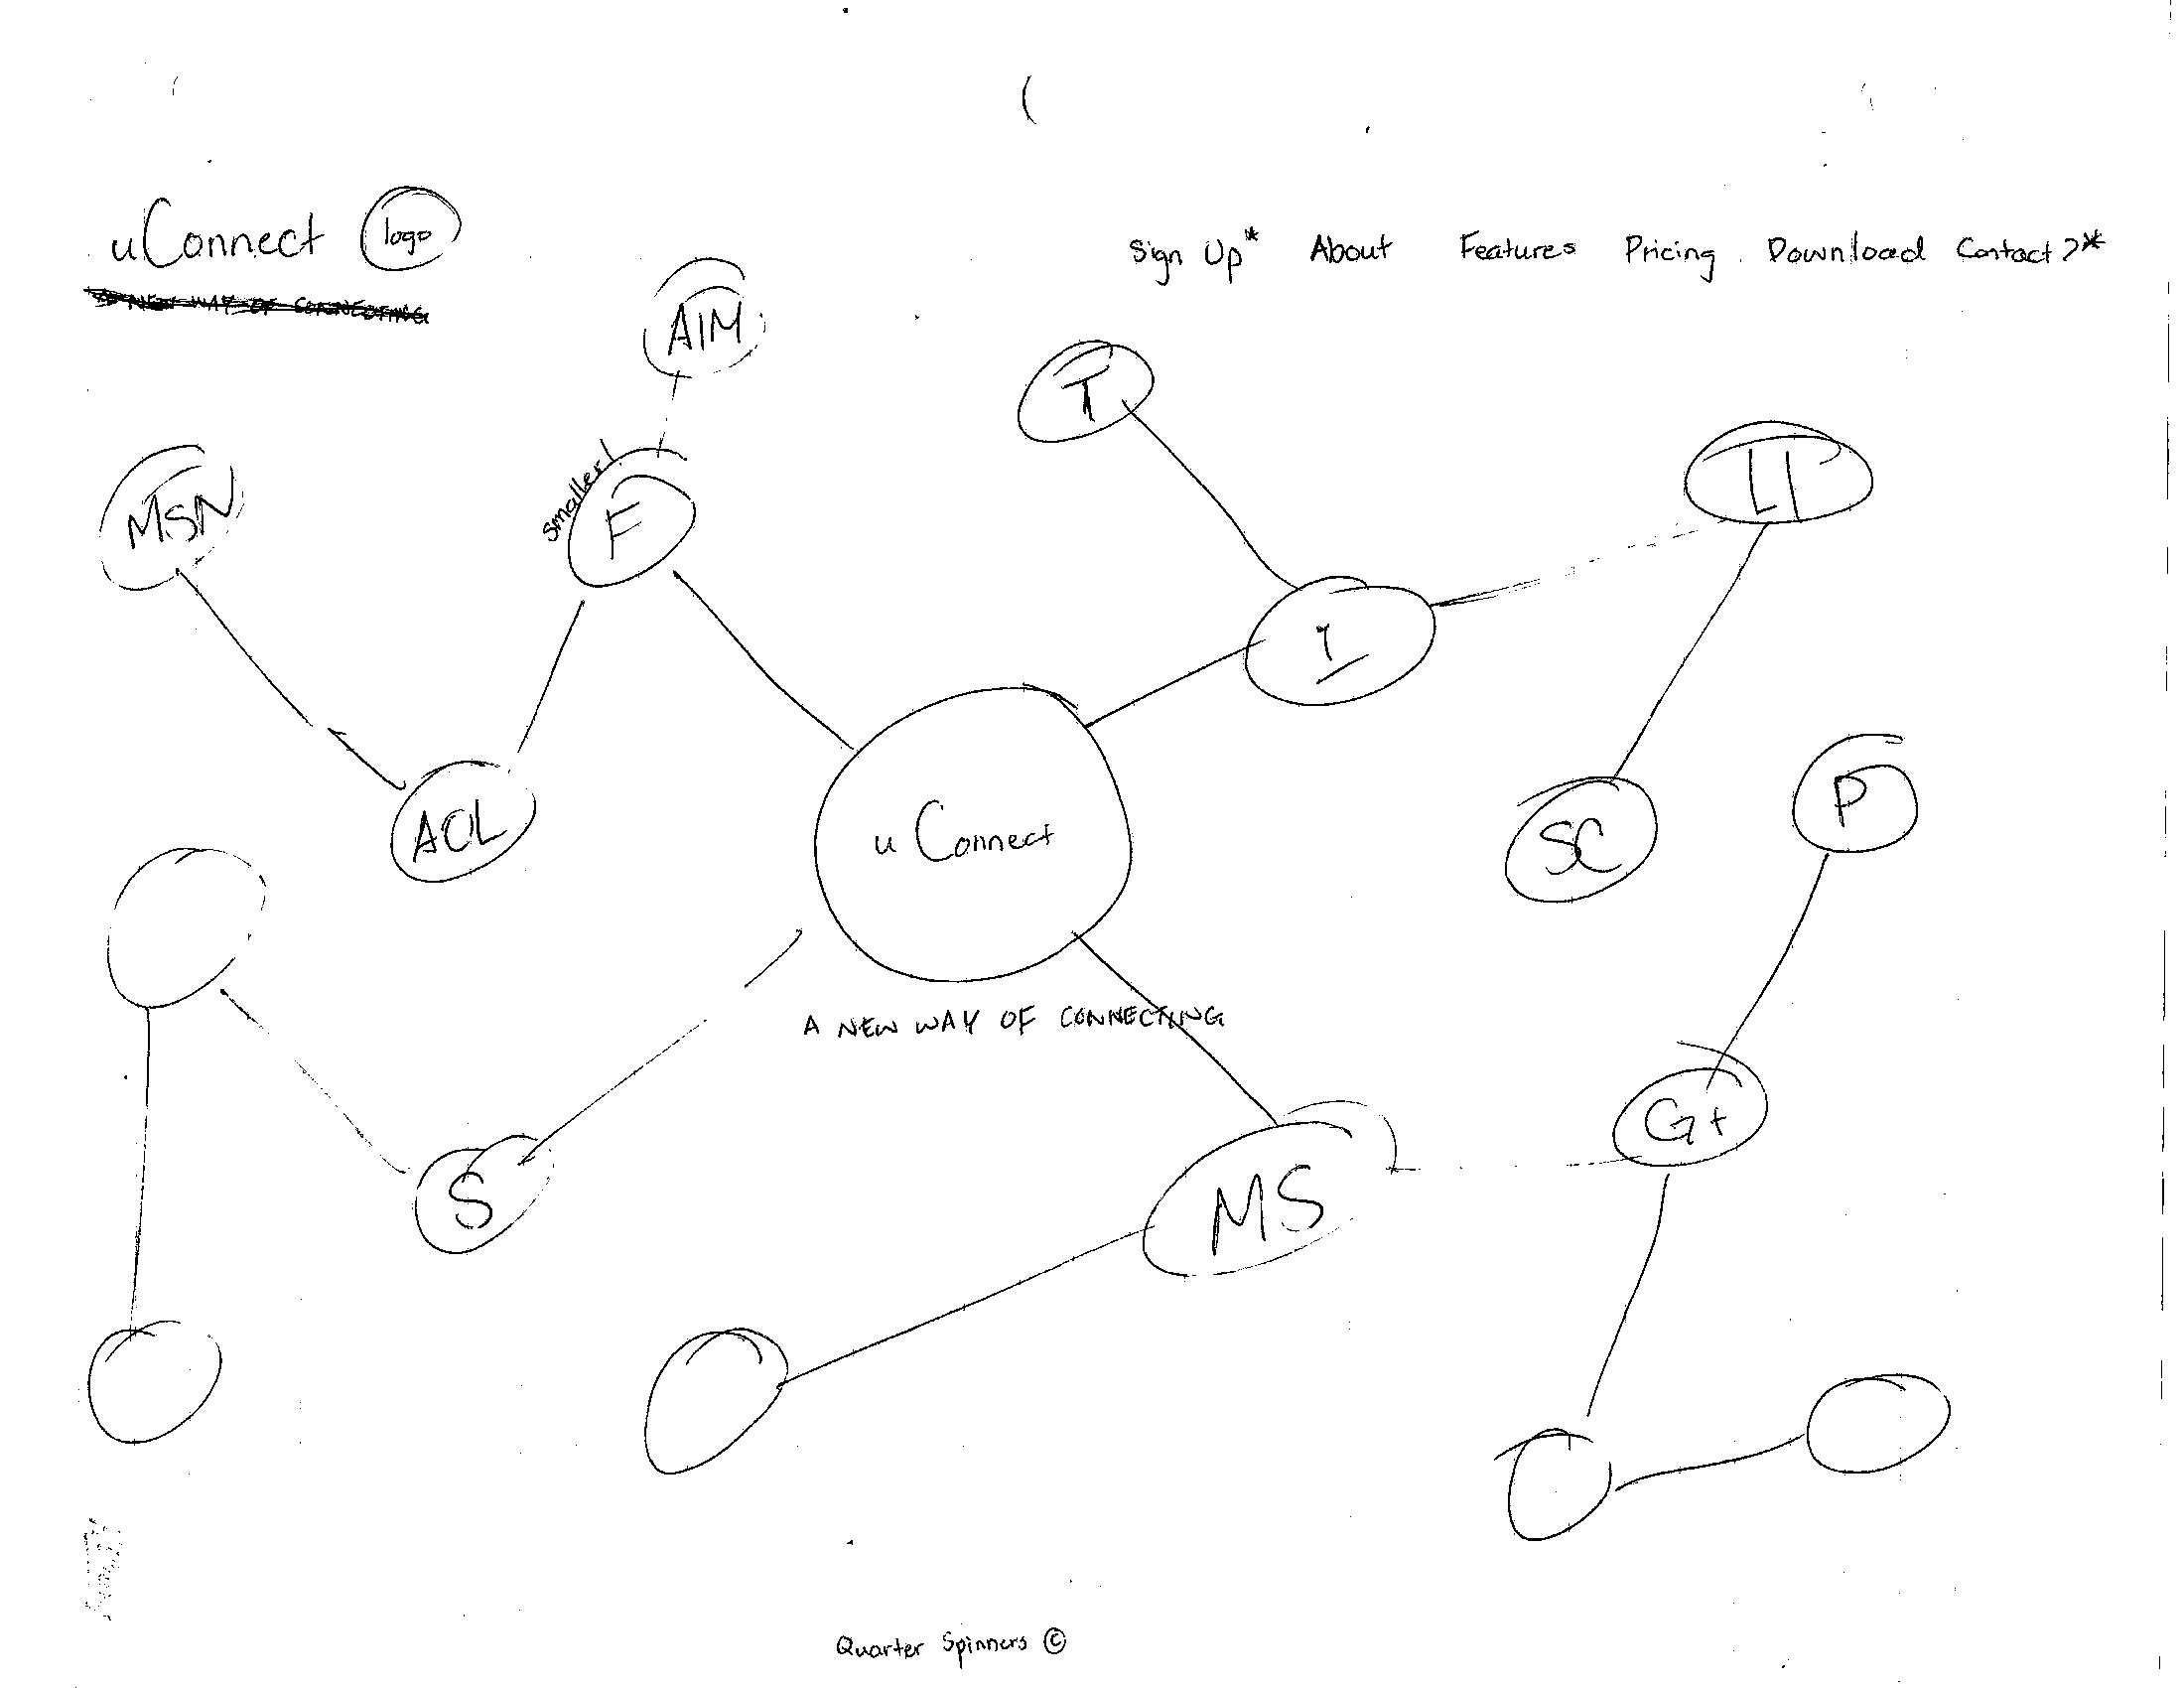 uConnect logo
A NEW WAY OF CONNECTING
Sign Up* About Features Pricing Download Contact >*
AIM
T
LI
MSN
smaller!
F
Y
P
ACL
SC
uConnect
A NEW WAY OF CONNECTING
G+
S
MS
Quarter Spinners ©